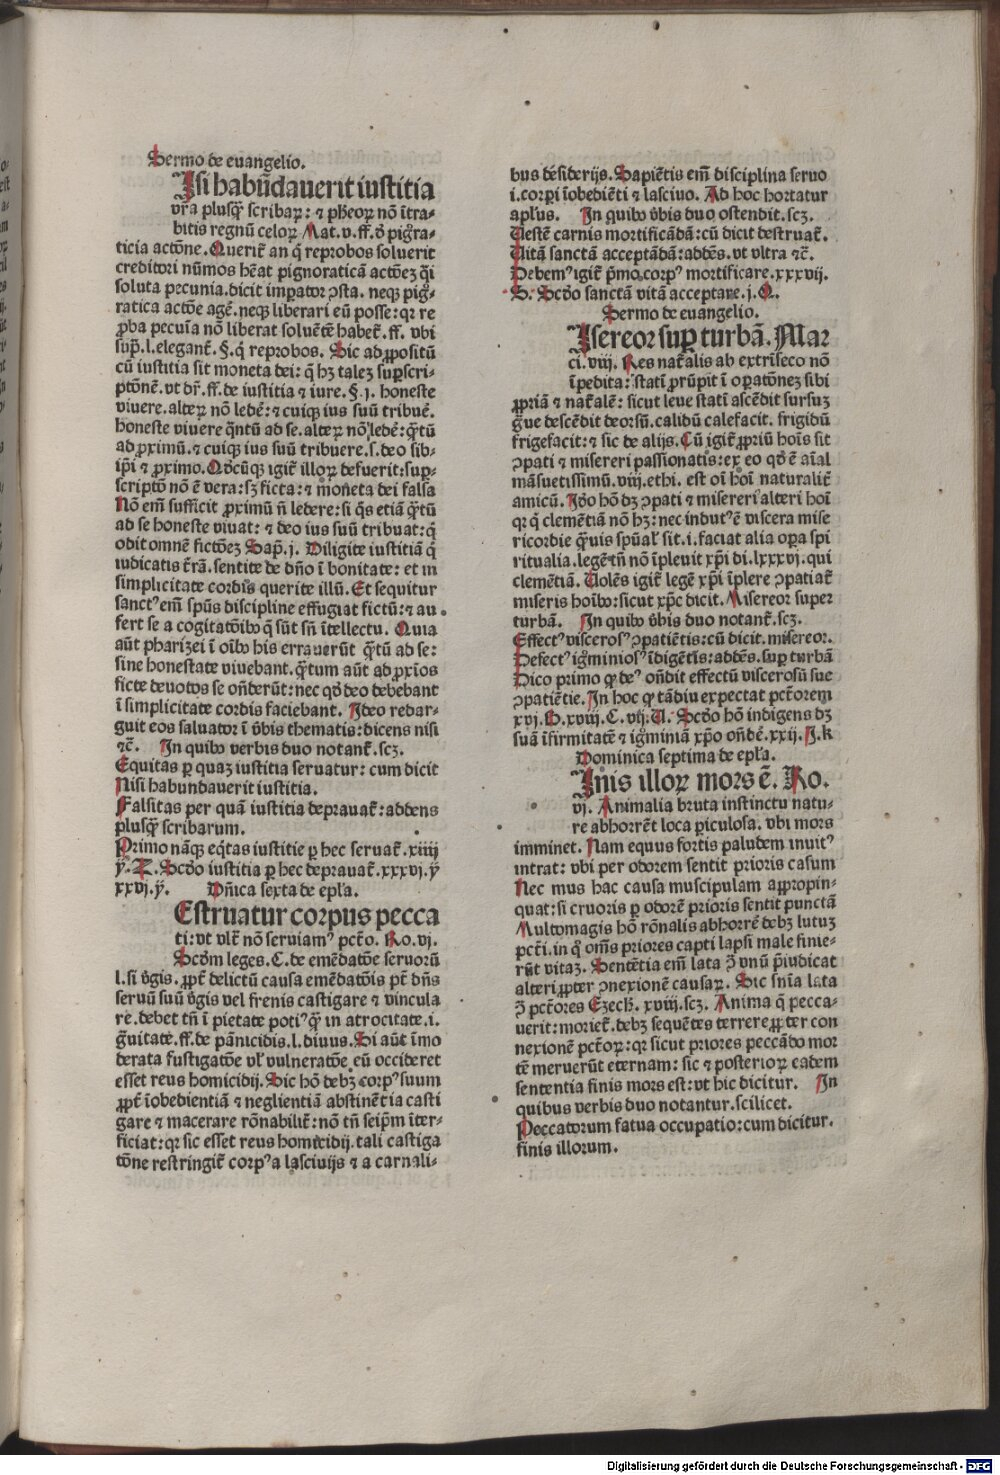 Sermo de euangelio.
Isi habūdauerit iustitia
vr̄a plusq̄ʒ scribaꝝ: ⁊ pħeoꝝ nō ītra-
bitis regnū celoꝝ Mat.v.ff.ð pigr̄a-
ticia actōne. Querit̄ an q̄ reprobos soluerit
creditori nūmos hēat pignoraticā actōeʒ q̄i
soluta pecunia.dicit imꝑator ꝯsta. neqʒ pig̅r-
ratica actōe agē. neqʒ liberari eū posse: qꝛ re
ꝓba pecuīa nō liberat soluētē habet̄. ff. vbi
suꝑ. l. elegant̄. §. q̄ reprobos. Sic ad ꝓpositū
cū iustitia sit moneta dei: q̄ hʒ taleʒ suꝑscri-
ptōnē. vt dr̄. ff. de iustitia ⁊ iure. §. j. honeste
viuere. alteꝝ nō ledē: ⁊ cuiqʒ ius suū tribuē.
honeste viuere q̄ntū ad se. alteꝝ nō ledē: q̄tū
ad ꝓximū. ⁊ cuiqʒ ius suū tribuere. s. deo sib-
ip̄i ⁊ ꝓximo. Qd̄cūqʒ igit̄ illoꝝ defuerit: suꝑ-
scriptō nō ē vera: sʒ ficta: ⁊ moneta dei falsa
Nō em̄ sufficit ꝓximū n̄ ledere: si q̄s etiā q̄tū
ad se honeste viuat: ⁊ deo ius suū tribuat: q̄
odit omnē fictōeʒ Sap̄. j. Diligite iustitiā q̄
iudicatis t̄rā. sentite de dn̄o ī bonitate: et in
simplicitate cordis querite illū. Et sequitur
sanctꝰ em̄ spūs discipline effugiat fictū: ⁊ au
fert se a cogitatōibꝰ q̄ sūt sn̄ ītellectu. Quia
aūt pharizei ī oībꝰ his errauerūt q̄tū ad se:
sine honestate viuebant. q̄tum aūt ad ꝓxīos
ficte deuotos se on̄derūt: nec qd̄ deo debebant
ī simplicitate cordis faciebant. Ideo redar-
guit eos saluator ī v̄bis thematis: dicens nisi
⁊c̄. In quibꝰ verbis duo notant̄. scʒ.
Equitas ꝑ quaʒ iustitia seruatur: cum dicit
Nisi habundauerit iustitia.
Falsitas per quā iustitia deprauat̄: addens
plusq̄ʒ scribarum.
Primo nāqʒ eq̄tas iustitie ꝑ hec seruat̄. xiiij
ẏ. T. Scd̄o iustitia ꝑ hec deprauat̄. xxxvj. ẏ
xxvj. ẏ. Dn̄ica sexta de epl̄a.
Estruatur corpus pecca
ti: vt vlt̄ nō seruiamꝰ pctō. Ro. vj.
Scdm̄ leges. C. de emēdatōe seruorū
l. si ðgis. ꝓpt̄ delictū causa emēdatōis pt̄ dn̄s
seruū suū ðgis vel frenis castigare ⁊ vincula
re. debet tn̄ ī pietate potiꝰ q̄ʒ in atrocitate. i.
g̅uitate. ff. de pānicidis. l. diuus. Si aūt īmo
derata fustigatōe vl̄ vulneratōe eū occideret
esset reus homicidij. Sic hō debʒ corpꝰ suum
ꝓpt̄ īobedientiā ⁊ neglientiā abstinētia casti
gare ⁊ macerare rōnabilit̄: nō tn̄ seip̄m īter-
ficiat: qꝛ sic esset reus homicidij. tali castiga
tōne restringit̄ corpꝰ a lasciuijs ⁊ a carnali-
bus desiderijs. Sapiētis em̄ disciplina seruo
i. corpi īobediēti ⁊ lasciuo. Ad hoc hortatur
apl̄us. In quibꝰ v̄bis duo ostendit. scʒ.
Uestē carnis mortificādā: cū dicit destruat̄.
Uitā sanctā acceptādā: addēs. vt vltra ⁊c̄.
Debemꝰ igit̄ p̄mo corpꝰ mortificare. xxxvij.
S. Scd̄o sanctā vitā acceptare. j. Q.
Sermo de euangelio.
Isereor suꝑ turbā. Mar
ci. viij. Res nat̄alis ab extrīseco nō
īpedita: statī ꝓrūpit ī oꝑatōneʒ sibi
ꝓpriā ⁊ nat̄alē: sicut leue statī ascēdit sursuʒ
g̅ue descēdit deorsū. calidū calefacit. frigidū
frigefacit: ⁊ sic de alijs. Cū igit̄ ꝓpriū hoīs sit
ꝯpati ⁊ misereri passionatis: ex eo qd̄ ē aīal
māsuetissimū. viij. ethi. est oī hoī naturalit̄
amicū. Iðo hō dʒ ꝯpati ⁊ misereri alteri hoī
qꝛ q̄ clemētiā nō hʒ: nec indutꝰ ē viscera mise
ricordie q̄uis spūal̄ sit. i. faciat alia oꝑa spi
ritualia. legē tn̄ nō īpleuit xp̄i di. lxxxvj. qui
clemētiā. Uolēs igit̄ legē xp̄i īplere ꝯpatiat̄
miseris hoībꝰ: sicut xp̄c dicit. Misereor super
turbā. In quibꝰ v̄bis duo notant̄. scʒ.
Effectꝰ viscerosꝰ ꝯpatiētis: cū dicit. misereor.
Defectꝰ ig̅miniosꝰ īdigētis: addēs. suꝑ turbā
Dico primo ꝙ deꝰ on̄dit effectū viscerosū sue
ꝯpatiētie. In hoc ꝙ tādiu expectat pctōrem
xvj. H. xviij. C. vij. U. Scd̄o hō indigens dʒ
suā īfirmitatē ⁊ ig̅miniā xp̄o on̄dē. xxij. J. k
Dominica septima de epl̄a.
Inis illoꝝ mors ē. Ro.
vj. Animalia bruta instinctu natu-
re abhorrēt loca ꝑiculosa. vbi mors
imminet. Nam equus fortis paludem inuitꝰ
intrat: vbi per odorem sentit prioris casum
Nec mus hac causa muscipulam appropin-
quat: si cruoris ꝑ odorē prioris sentit punctā
Multomagis hō rōnalis abhorrē debʒ lutuʒ
pctī. in q̄ om̄s priores capti lapsi male finie-
rūt vitaʒ. Sentētia em̄ lata ꝯ̄ vnū p̄iudicat
alteri ꝓpter ꝯnexionē causaꝝ. Sic sn̄ia lata
ꝯ̄ pctōres Ezech. xviij. scʒ. Anima q̄ pecca-
uerit: moriet̄. debʒ sequētes terrere ꝓpter con
nexionē pctōꝝ: qꝛ sicut priores peccādo mor
tē meruerūt eternam: sic ⁊ posterioꝝ eadem
sententia finis mors est: vt hic dicitur. In
quibus verbis duo notantur. scilicet.
Peccatorum fatua occupatio: cum dicitur.
finis illorum.
Digitalisierung gefördert durch die Deutsche Forschungsgemeinschaft - DFG